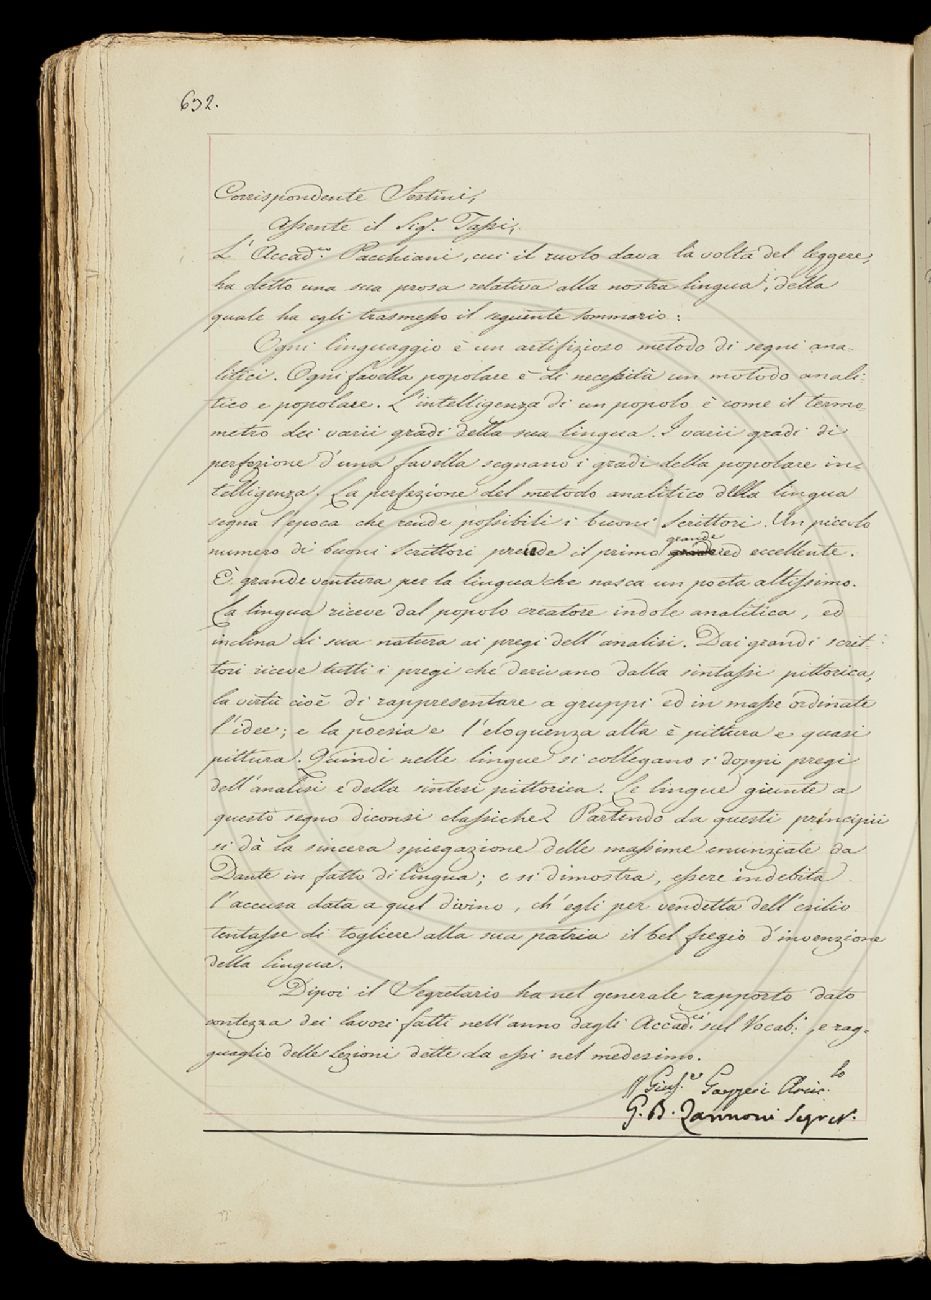 632.
Corrispondente Sestini,
Assente il Sigr. Tassi,
L'Accadco. Pacchiani, cui il ruolo dava la volta del leggere,
ha detto una sua prosa relativa alla nostra lingua, della
quale ha egli trasmesso il seguente sommario:
Ogni linguaggio è un artifizioso metodo di segni ana-
litici. Ogni favella popolare è di necessità un metodo anali-
tico e popolare. L'intelligenza di un popolo è come il termo-
metro dei varii gradi della sua lingua. I varii gradi di
perfezione d'una favella segnano i gradi della popolare in-
telligenza. La perfezione del metodo analitico della lingua
segna l'epoca che rende possibili i buoni scrittori. Un piccolo
numero di buoni scrittori prende il primo grande ed eccellente.
È grande ventura per la lingua che nasca un poeta altissimo.
La lingua riceve dal popolo creatore indole analitica, ed
inclina di sua natura ai pregi dell'analisi. Dai grandi scrit-
tori riceve tutti i pregi che derivano dalla sintassi pittorica,
la virtù cioè di rappresentare a gruppi ed in masse ordinate
l'idee; e la poesia e l'eloquenza alta è pittura e quasi
pittura. Quindi nelle lingue si collegano i doppi pregi
dell'analisi e della sintesi pittorica. Le lingue giunte a
questo segno diconsi classiche. Partendo da questi principii
si dà la sincera spiegazione delle massime enunziate da
Dante in fatto di lingua; e si dimostra, essere indebita
l'accusa data a quel divino, ch'egli per vendetta dell'esilio
tentasse di togliere alla sua patria il bel fregio d'invenzione
della lingua.
Dipoi il Segretario ha nel generale rapporto dato
contezza dei lavori fatti nell'anno dagli Accadci sul Vocab:, e rag-
guaglio delle Lezioni dette da essi nel medesimo.
Giuse. Gazzeri Arcic.lo
G. B. Zannoni Segret.